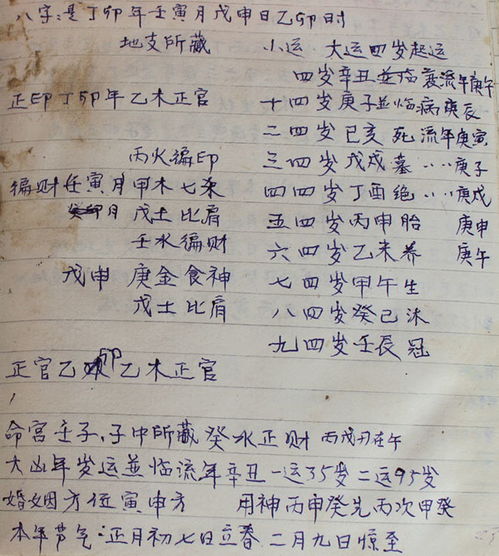 八字:是丁卯年壬寅月戊申日乙卯时
地支所藏 小运 大运四岁起运
四岁辛丑並临衰流年庚午
正印丁卯年乙木正官 十四岁庚子並临病庚辰
二四岁己亥 死 流年庚寅
丙火偏印 三四岁戊戌墓 ‥‥庚子
偏财壬寅月甲木七杀 四四岁丁酉绝 ‥‥庚戌
月 戊土比肩 五四岁丙申胎 庚申
壬水偏财 六四岁乙未养 庚午
戊申 庚金食神 七四岁甲午生
戊土比肩 八四岁癸巳沐
九四岁壬辰冠
正官乙卯乙木正官
命宫壬子,子中所藏癸水正财 丙戌丑在午
大凶年岁运並临流年辛丑一运35岁二运95岁
婚姻方位寅申方 用神丙甲癸先丙次甲癸
本年节气:正月初七日立春 二月九日惊至